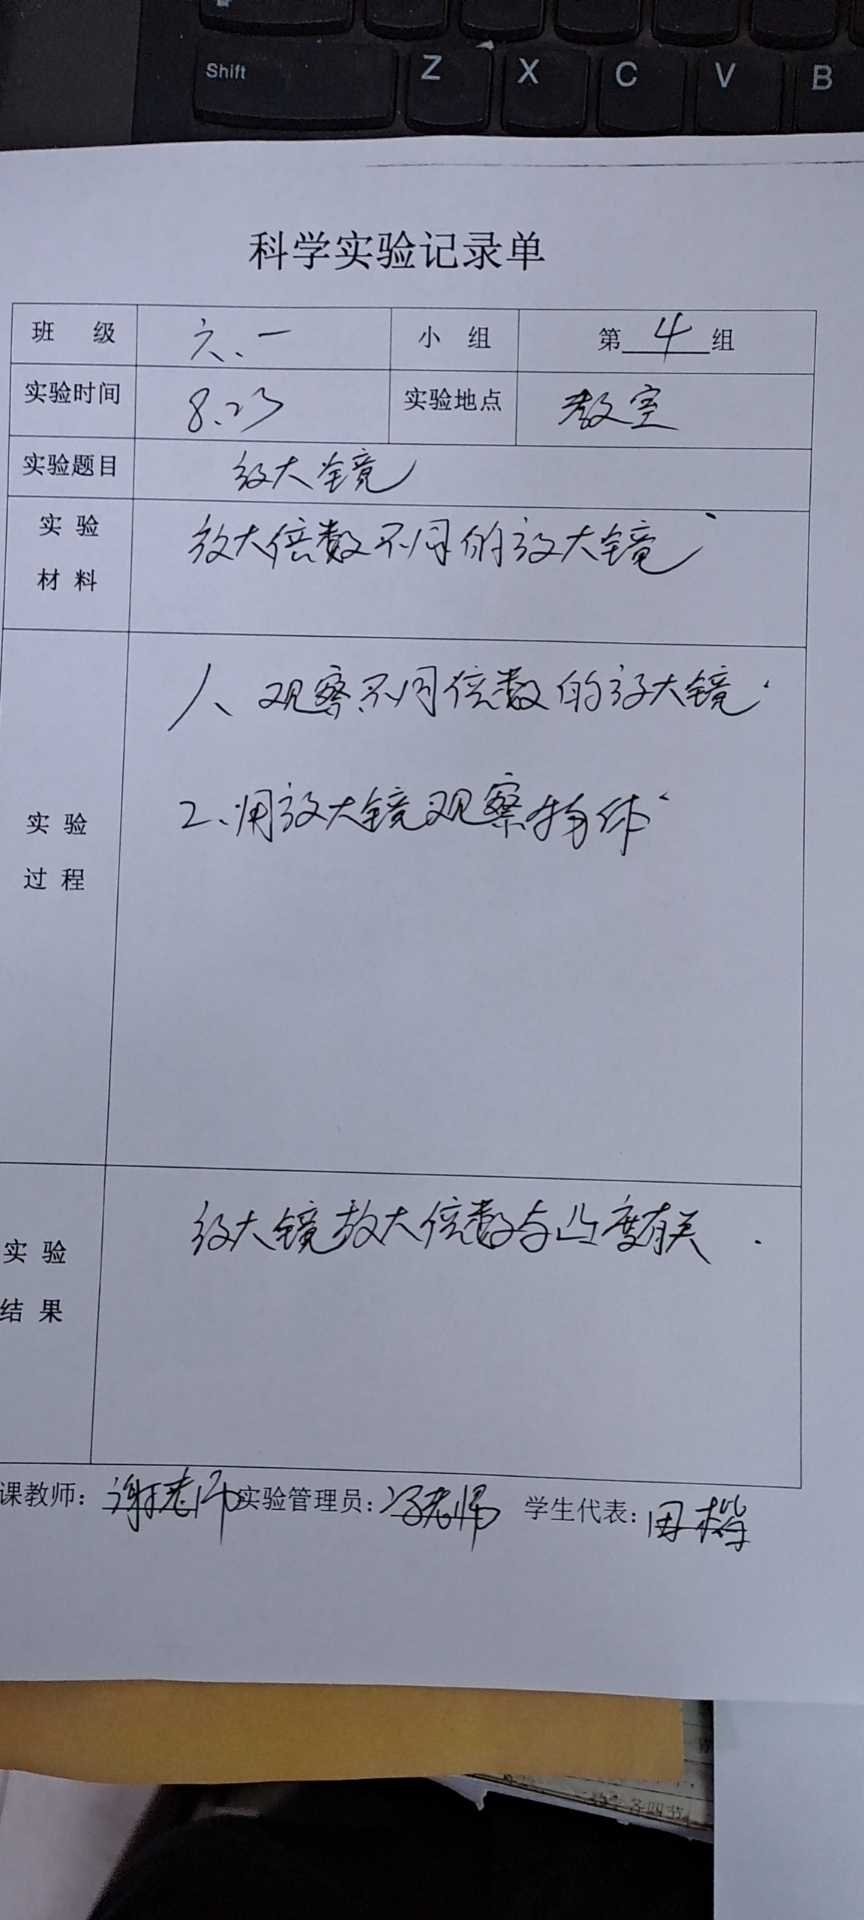 Shift Z X C V B
科学实验记录单
班 级 六、一 小 组 第 4 组
实验时间 8.23 实验地点 教室
实验题目 放大镜
实 验 材 料 放大倍数不同的放大镜
1、观察不同倍数的放大镜.
实 验 过 程
2、用放大镜观察物体.
实 验 结 果 放大镜放大倍数与凸度有关.
课教师: 谢老师 实验管理员: 冯老师 学生代表: 田楷